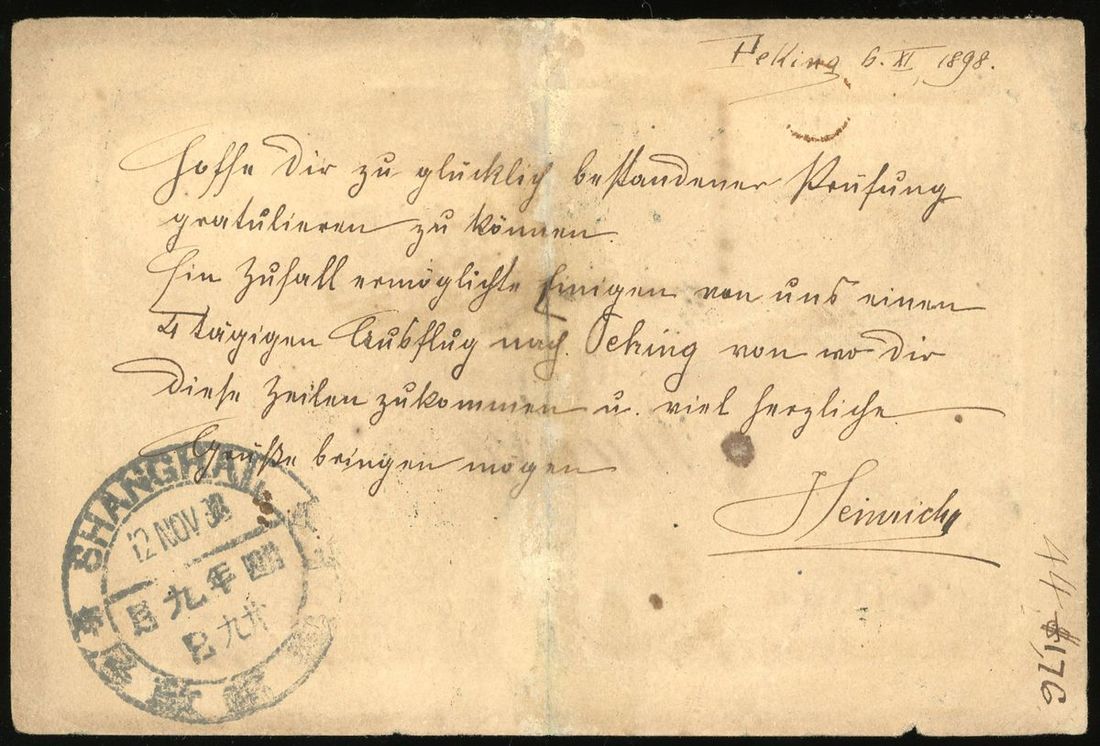 Peking 6. XI. 1898.
Hoffe Dir zu glücklich bestandener Prüfung
gratulieren zu können.
Ein Zufall ermöglichte Einigen von uns einen
4 tägigen Ausflug nach Peking von wo Dir
diese Zeilen zukommen u. viel herzliche
Grüße bringen mögen
Heinrich
SHANGHAI
12 NOV 98
月九年四
日九廿
44
$1,76